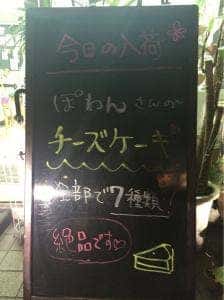 今日の入荷
ぽわんさんの
チーズケーキ
全部で7種類!
絶品です♡